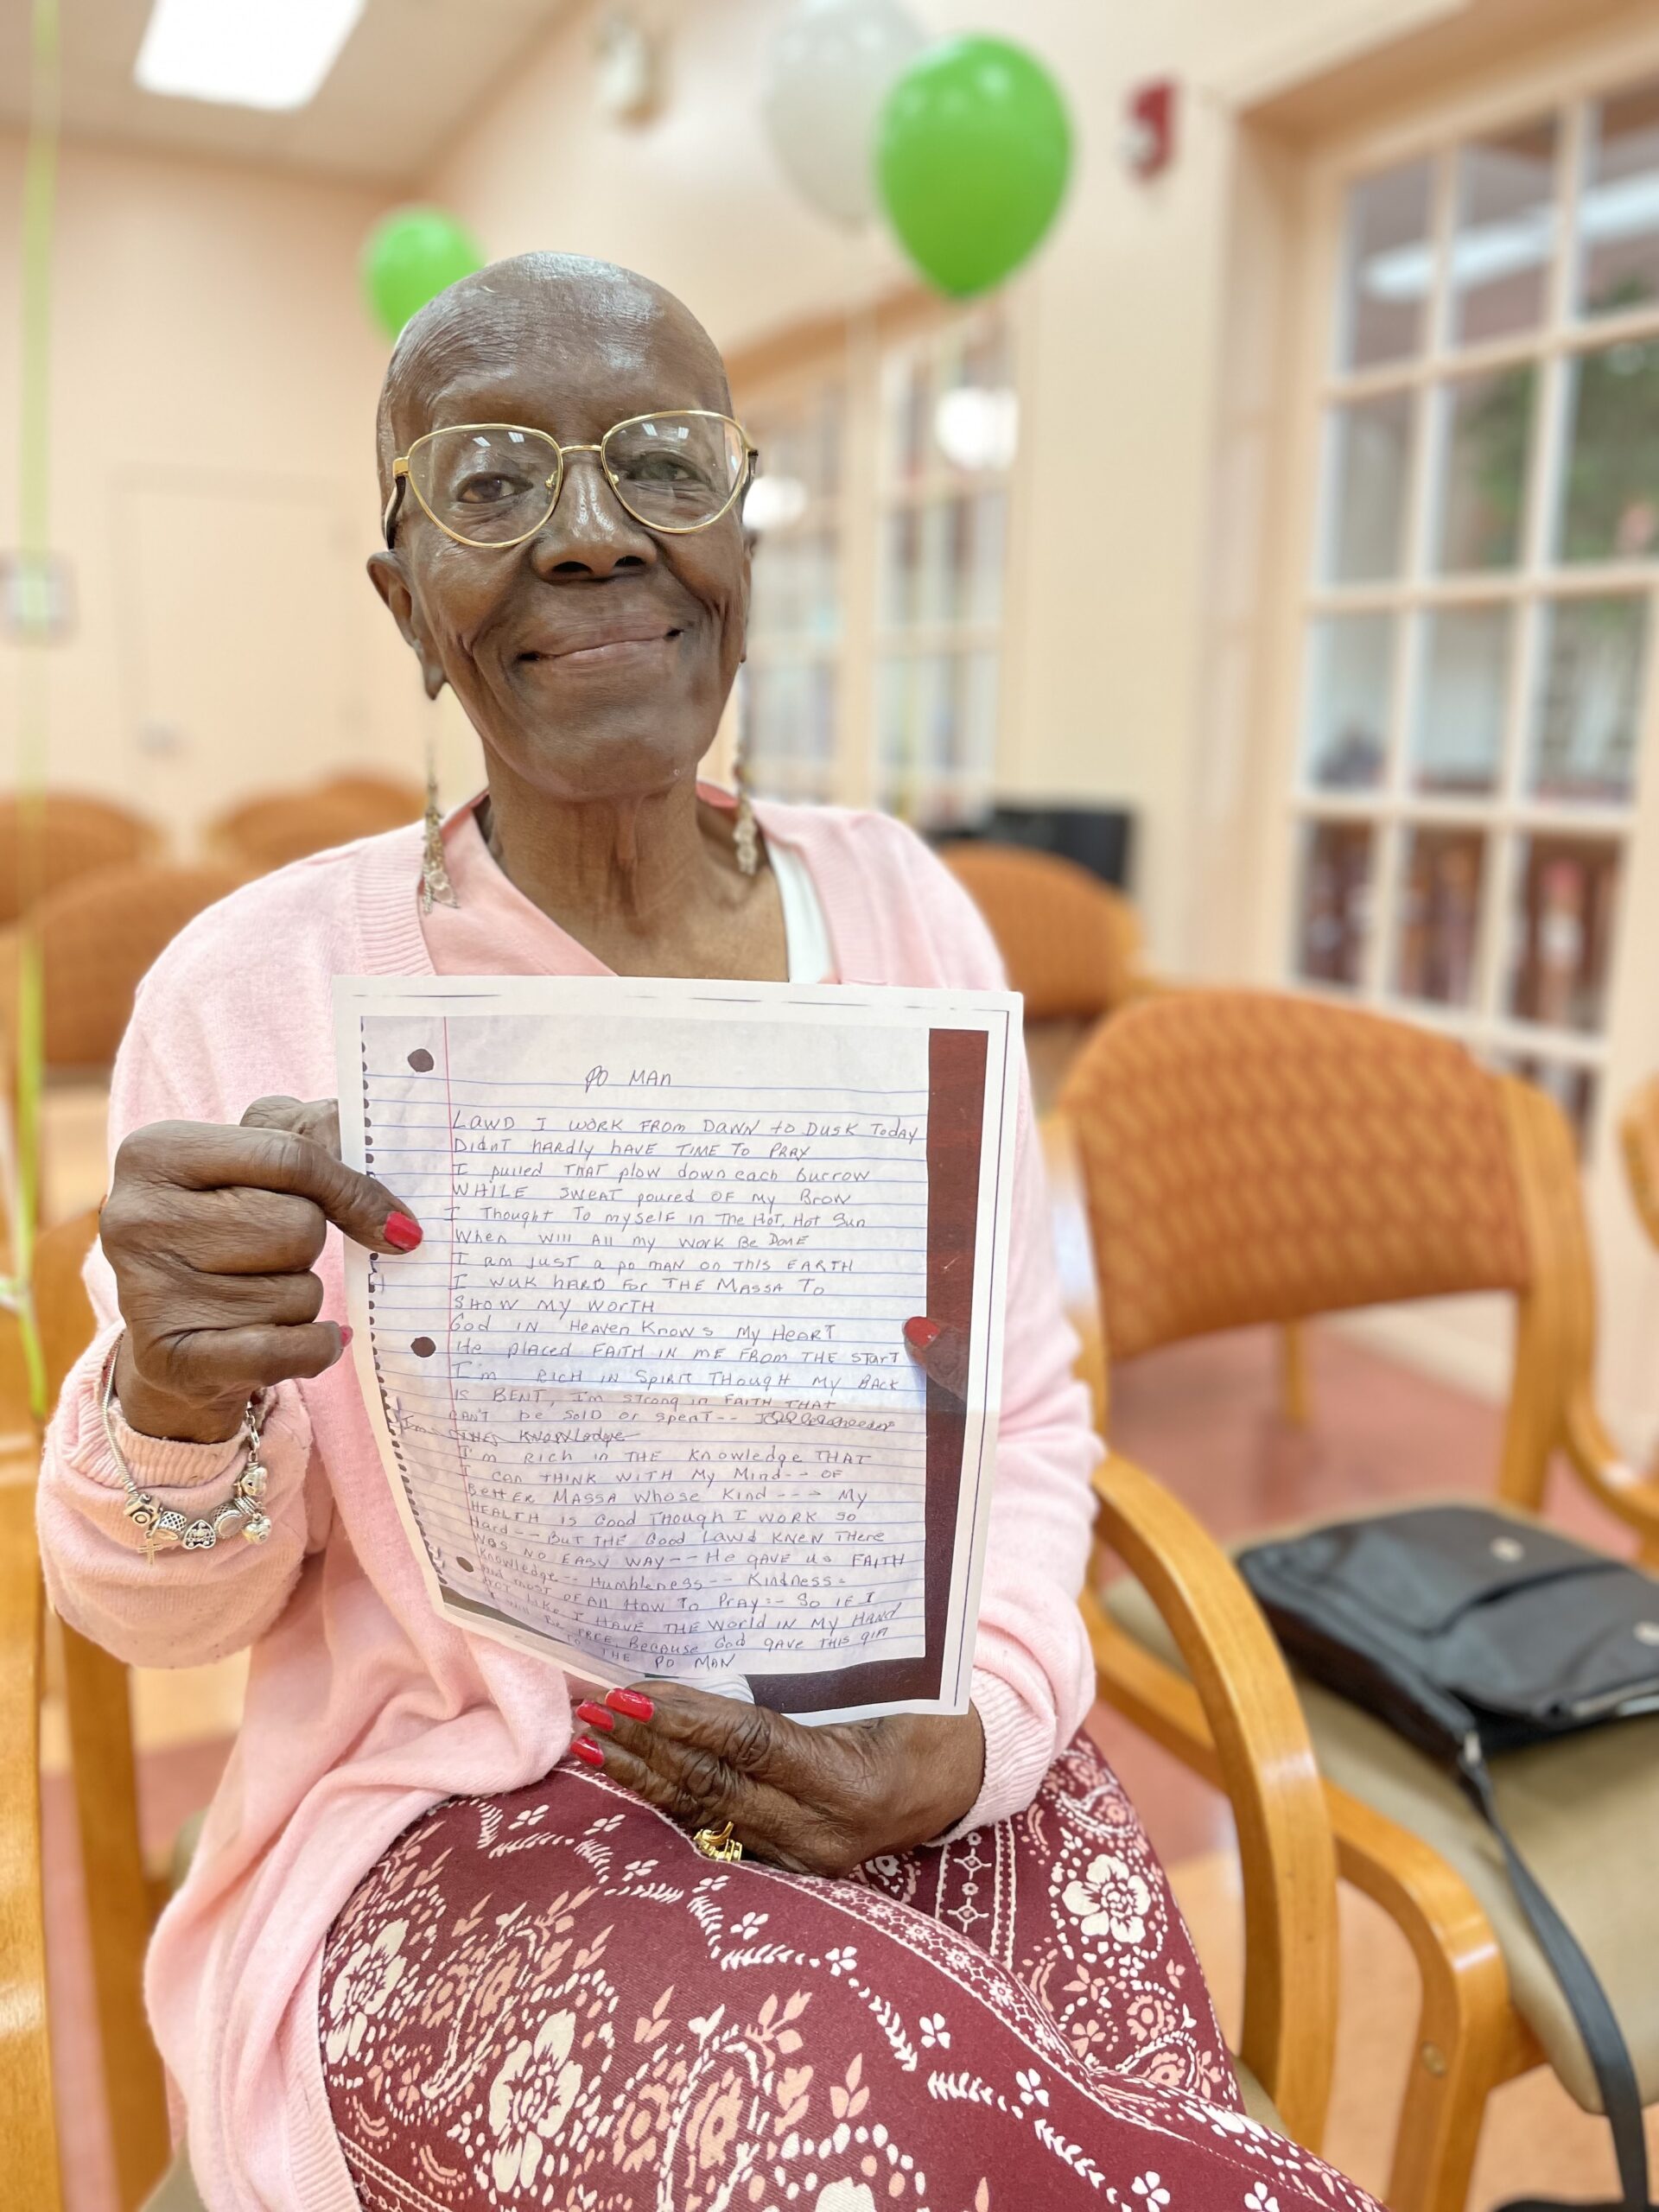 PO MAN
LAWD I WORK FROM DAWN to DUSK Today
Didnt hARdly hAVE TIME To PRAY
I pulled THAT plow down each burrow
WHILE SWEAT poured OF My BROW
I Thought To myself in The Hot, Hot Sun
When Will All my WORK Be DONE
I am just a po MAN on THIS EARTH
I WUK hARD For THE MASSA To
SHOW My WORTH
God IN HeAVen Knows My HeART
He placed FAITH IN ME FROM THE START
I'm RICH IN SPIRIT THough My BACK
IS BENT, I'm strong in FAITH THAT
CAN'T be Sold or spent--
KNOWLedge
I'm RICH in THE Knowledge THAT
I can THINK WITH My Mind-- OF
BettER MASSA Whose Kind --- My
HEALTH IS Good THough I WORK SO
Hard-- BuT THE Good LAWd KNEW THere
WAS NO EASY WAY-- He gAVE us FAITH
Knowledge-- Humbleness-- Kindness-
And most OF All How To Pray:- So IF I
Act like I HAVE THE World IN My HAND
I will Be FREE, Because God gAVE THIS gift
TO THE PO MAN